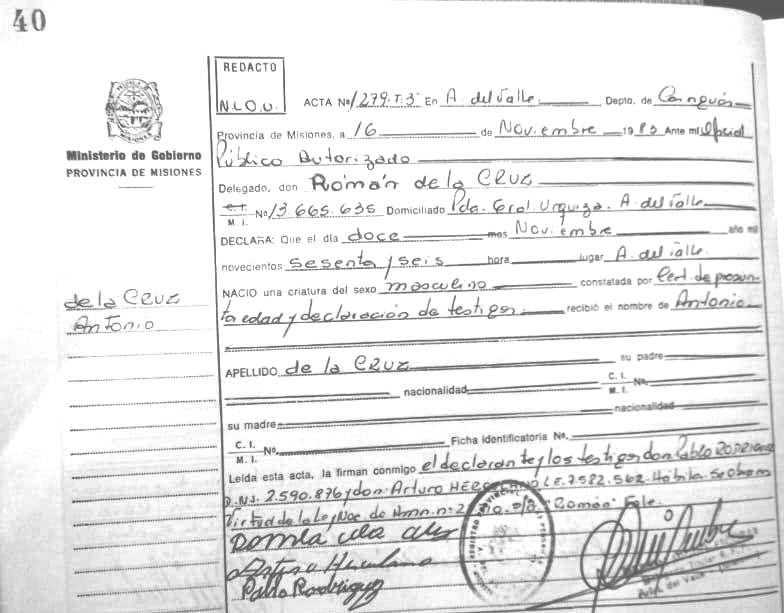 40
REDACTO
N.L.O.U.
ACTA Nº 1279.T.3 En A. del Valle Depto. de Cainguás
Provincia de Misiones, a 16 de Noviembre 1983 Ante mi Oficial
Ministerio de Gobierno
PROVINCIA DE MISIONES
Público Autorizado
Delegado, don Román de la CRUZ
C. I.
M. I. Nº 13.665.635 Domiciliado Pda. Gral. Urquiza. A. del Valle
DECLARA: Que el día doce mes Noviembre año mil
novecientos sesenta y seis hora lugar A. del Valle.
NACIO una criatura del sexo masculino constatada por Cert. de presun-
ta edad y declaración de testigos recibió el nombre de Antonio
de la CRUZ
Antonio
APELLIDO de la CRUZ su padre
nacionalidad C. I.
M. I. Nº
su madre nacionalidad
C. I.
M. I. Nº Ficha identificatoria Nº
Leída esta acta, la firman conmigo el declarante y los testigos don Pablo RODRIGUEZ
D.N.I. 2.590.876 y don Arturo HERCULANO L.E. 7.522.562.
virtud de la Ley Nac. de "Román" Vale.
Arturo Herculano
Pablo Rodriguez